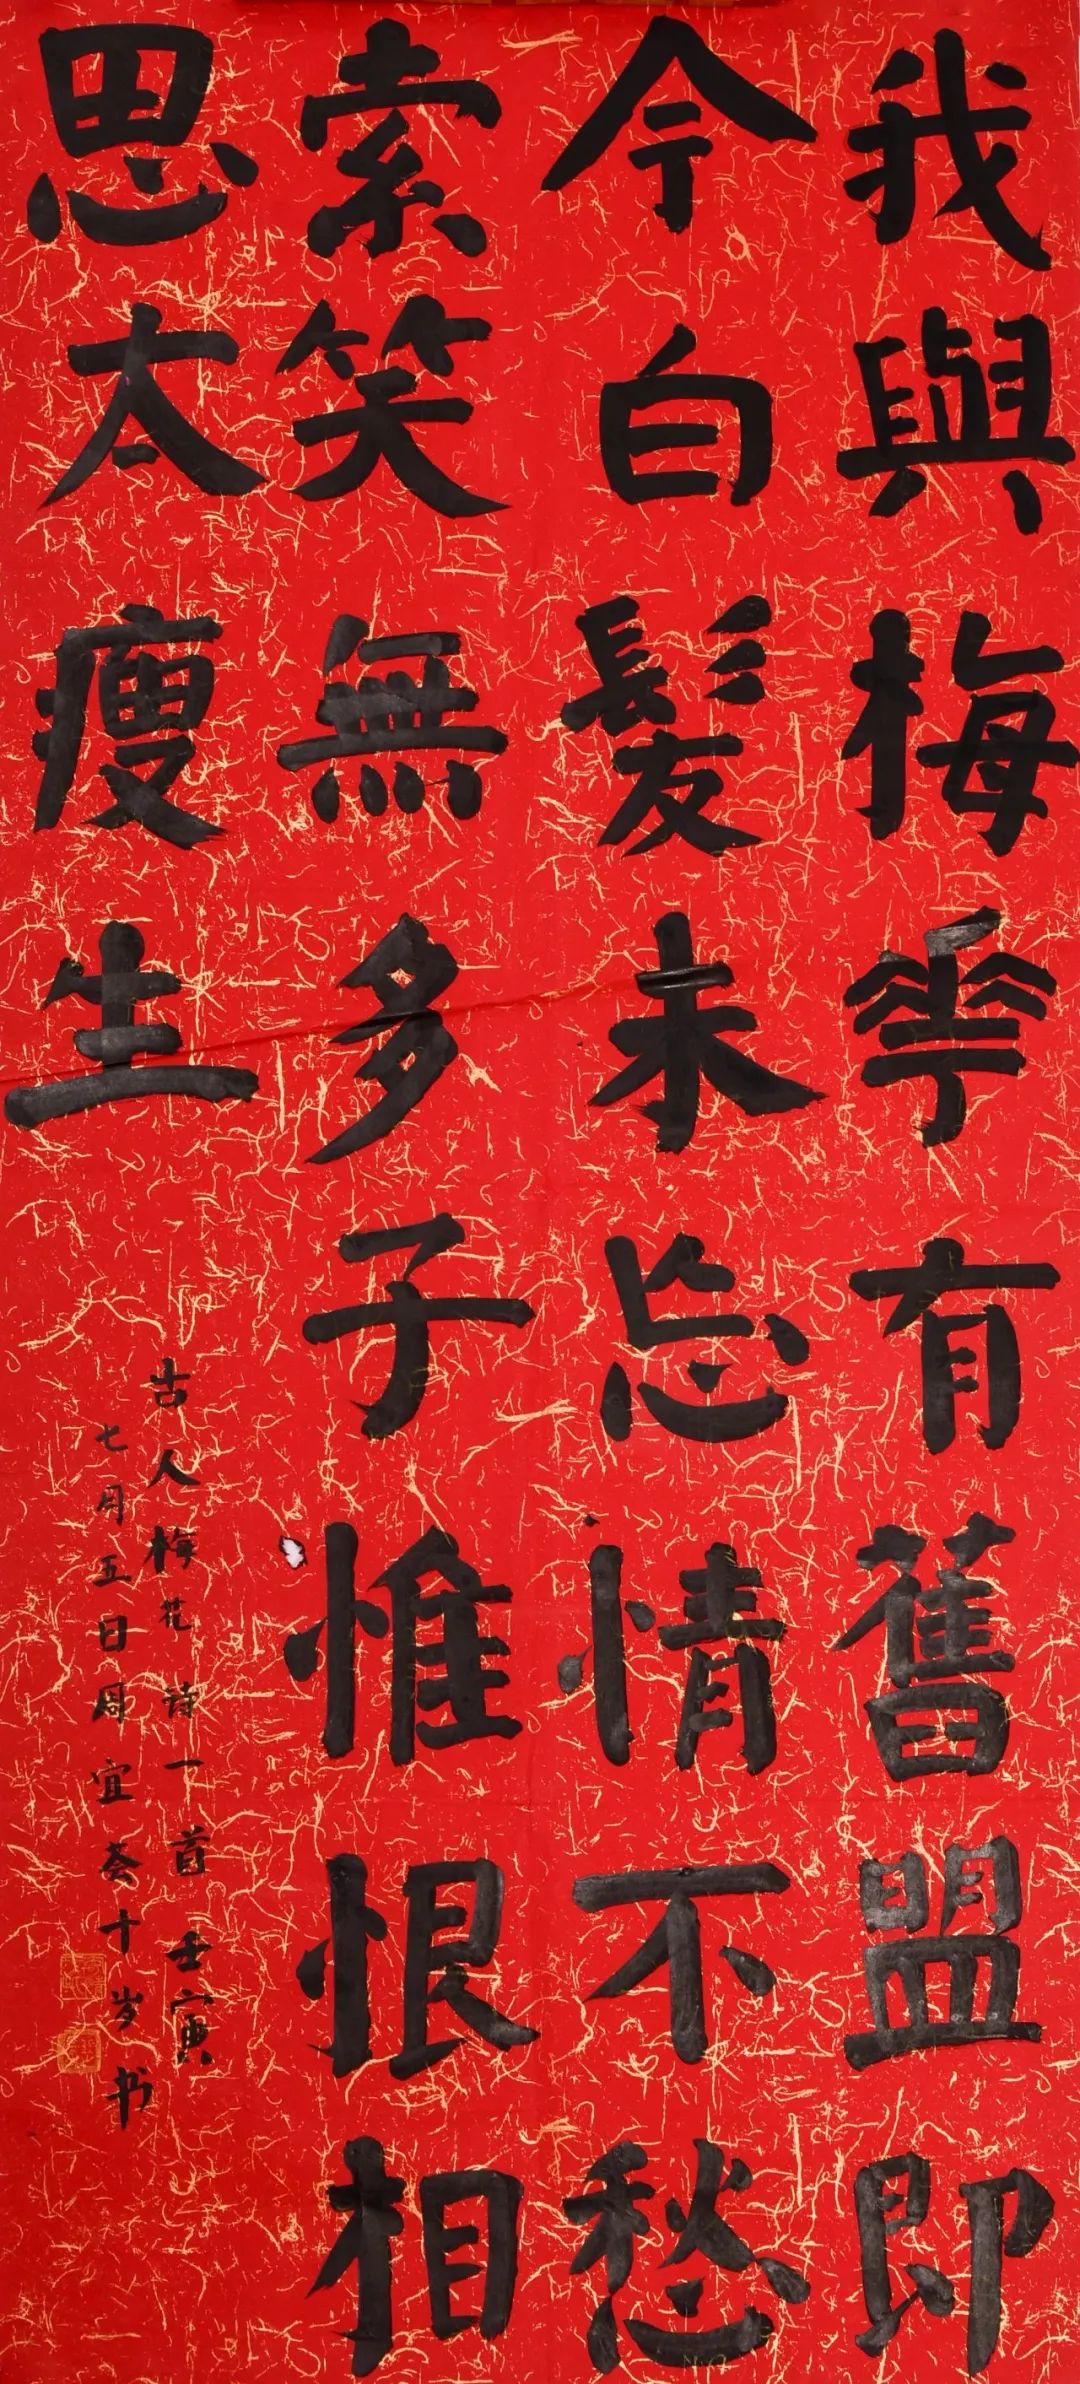 我與梅花有舊盟即
今白髮未忘情不愁
索笑無多子惟恨相
思太瘦生
古人梅花诗一首壬寅
七月五日周宜荟十岁书